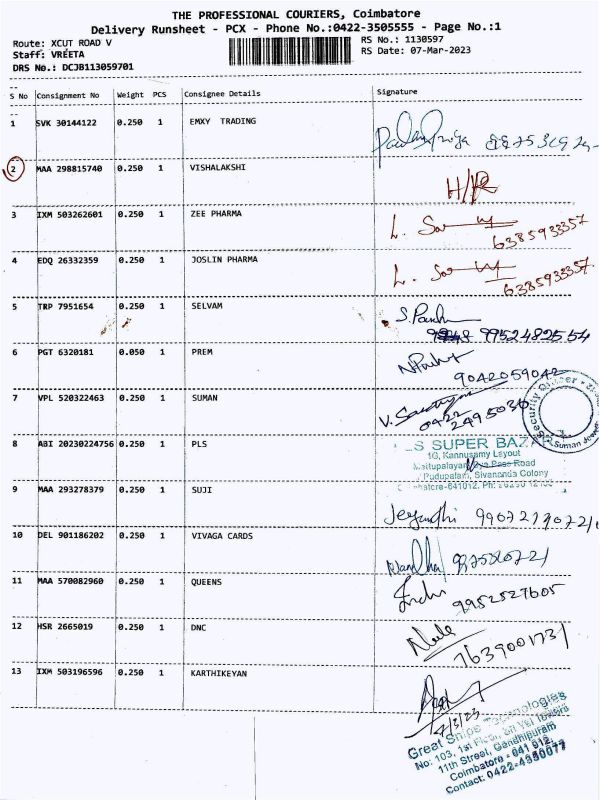 THE PROFESSIONAL COURIERS, Coimbatore
Delivery Runsheet - PCX - Phone No.:0422-3505555 - Page No.:1
Route: XCUT ROAD V RS No.: 1130597
Staff: VREETA RS Date: 07-Mar-2023
DRS No.: DCJB113059701
S No Consignment No Weight PCS Consignee Details Signature
1 SVK 30144122 0.250 1 EMXY TRADING
2 MAA 298815740 0.250 1 VISHALAKSHI
3 IXM 503262601 0.250 1 ZEE PHARMA
6385933357
4 EDQ 26332359 0.250 1 JOSLIN PHARMA
6385933357
5 TRP 7951654 0.250 1 SELVAM
9952482554
6 PGT 6320181 0.050 1 PREM
9042059042
7 VPL 520322463 0.250 1 SUMAN
0422 2495036
Security Officer
Suman
8 ABI 20230224756 0.250 1 PLS
SUPER BAZAR
1G, Kannusamy Layout
Road
Pudupalayam, Sivananda Colony
641012. Ph:
9 MAA 293278379 0.250 1 SUJI
Jeyandhi
10 DEL 901186202 0.250 1 VIVAGA CARDS
Nandha
11 MAA 570082960 0.250 1 QUEENS
9952527605
12 HSR 2665019 0.250 1 DNC
7639001731
13 IXM 503196596 0.250 1 KARTHIKEYAN
7/3/23
Great Ships Technologies
No: 103, 1st Floor, Sri Towers
11th Street, Gandhipuram
Coimbatore - 641 012.
Contact: 0422-4350077